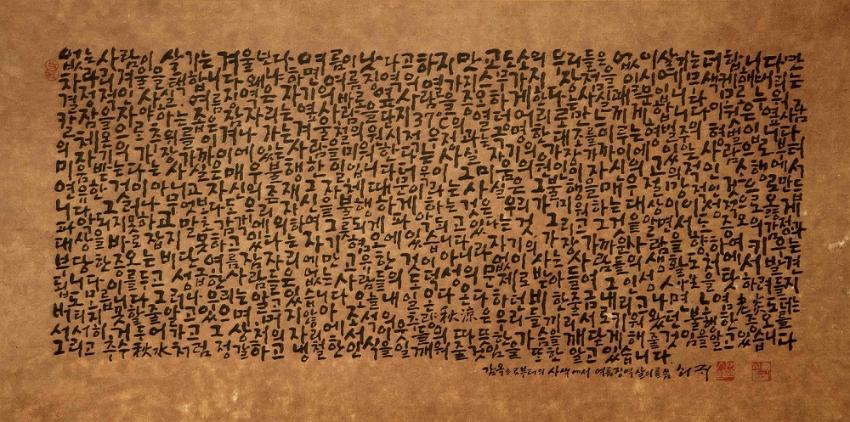 없는 사람이 살기는 겨울보다 여름이 낫다고 하지만 교도소의 우리들은 없이 살기는 더합니다만
차라리 겨울을 택합니다 왜냐하면 여름징역의 열가지 스무가지 장점을 일시에 무색케 해버리는
결정적인 사실 여름징역은 자기의 바로 옆사람을 증오하게 한다는 사실 때문입니다 모로 누워
칼잠을 자야하는 좁은 잠자리는 옆사람을 단지 37℃의 열덩어리로만 느끼게 합니다 이것은 옆사람의
체온으로 추위를 이겨나가는 겨울철의 원시적 우정과는 극명한 대조를 이루는 형벌중의 형벌입니다
자기의 가장 가까이에 있는 사람을 미워한다는 사실 자기의 가장 가까이에 있는 사람으로부터
미움받는다는 사실은 매우 불행한 일입니다 더욱이 그 미움의 원인이 자신의 고의적인 소행에서
연유한 것이 아니고 자신의 존재 그 자체 때문이라는 사실은 그 불행을 매우 절망적인 것으로 만듭
니다 그러나 무엇보다도 우리 자신을 불행하게 하는 것은 우리가 미워하는 대상이 이성적으로 옳게
파악되지 못하고 말초감각에 의하여 그릇되게 파악되고 있다는 것 그리고 그것을 알면서도 증오의 감정과
대상을 바로잡지 못하고 있다는 자기혐오에 있습니다 자기의 가장 가까운 사람을 향하여 키우는
부당한 증오는 비단 여름잠자리에만 고유한 것이 아니라 없이 사는 사람들의 생활 도처에서 발견
됩니다 이를 두고 성급한 사람들은 없는 사람들의 도덕성의 문제로 받아들여 그 인성을 탓하려 들지도
모릅니다 그러나 우리는 알고 있습니다 오늘 내일 온다 온다 하던 비 한줄금 내리고 나면 노염老炎도 더는
버티지 못할 줄 알고 있으며 머지않아 조석의 추량秋凉은 우리들끼리 서로 키워왔던 불행한 증오를
서서히 거두어가고 그 상처의 자리에서 이웃들의 따뜻한 가슴을 깨닫게 해줄 것임을 알고 있습니다
그리고 추수秋水처럼 정갈하고 냉철한 인식을 일깨워줄 것임을 또한 알고 있습니다
감옥으로부터의 사색에서 여름징역살이를 씀